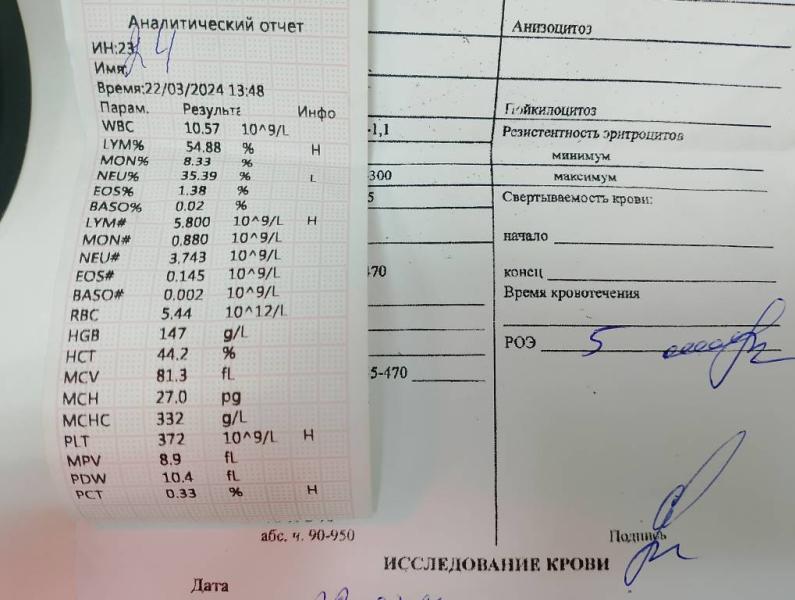 Аналитический отчет
ИН:23
Имя:
Время:22/03/2024 13:48
Парам. Результа Инфо
WBC 10.57 10^9/L
LYM% 54.88 % H
MON% 8.33 %
NEU% 35.39 % L
EOS% 1.38 %
BASO% 0.02 %
LYM# 5.800 10^9/L H
MON# 0.880 10^9/L
NEU# 3.743 10^9/L
EOS# 0.145 10^9/L
BASO# 0.002 10^9/L
RBC 5.44 10^12/L
HGB 147 g/L
HCT 44.2 %
MCV 81.3 fL
MCH 27.0 pg
MCHC 332 g/L
PLT 372 10^9/L H
MPV 8.9 fL
PDW 10.4 fL
PCT 0.33 % H
-1,1
-300
5
-70
5-470
абс. ч. 90-950
Анизоцитоз
Пойкилоцитоз
Резистентность эритроцитов
минимум
максимум
Свертываемость крови:
начало
конец
Время кровотечения
РОЭ 5
Подпись
ИССЛЕДОВАНИЕ КРОВИ
Дата